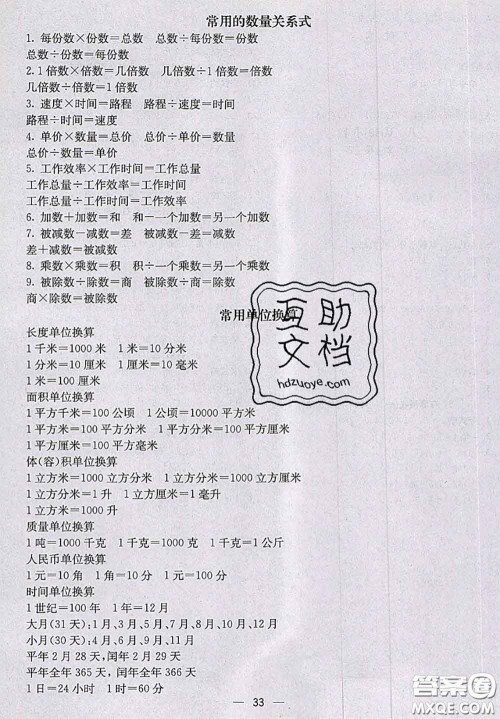 常用的数量关系式
1. 每份数×份数=总数　总数÷每份数=份数
总数÷份数=每份数
2.1倍数×倍数=几倍数　几倍数÷1倍数=倍数
几倍数÷倍数=1倍数
3. 速度×时间=路程　路程÷速度=时间
路程÷时间=速度
4. 单价×数量=总价　总价÷单价=数量
总价÷数量=单价
5. 工作效率×工作时间=工作总量
工作总量÷工作效率=工作时间
工作总量÷工作时间=工作效率
6. 加数+加数=和　和-一个加数=另一个加数
7. 被减数-减数=差　被减数-差=减数
差+减数=被减数
8. 乘数×乘数=积　积÷一个乘数=另一个乘数
9. 被除数÷除数=商　被除数÷商=除数
商×除数=被除数
常用单位换算
长度单位换算
1千米=1000米　1米=10分米
1分米=10厘米　1厘米=10毫米
1米=100厘米
面积单位换算
1平方千米=100公顷　1公顷=10000平方米
1平方米=100平方分米　1平方分米=100平方厘米
1平方厘米=100平方毫米
体(容)积单位换算
1立方米=1000立方分米　1立方分米=1000立方厘米
1立方分米=1升　1立方厘米=1毫升
1立方米=1000升
质量单位换算
1吨=1000千克　1千克=1000克　1千克=1公斤
人民币单位换算
1元=10角　1角=10分　1元=100分
时间单位换算
1世纪=100年　1年=12月
大月(31天):1月、3月、5月、7月、8月、10月、12月
小月(30天):4月、6月、9月、11月
平年2月28天,闰年2月29天
平年全年365天,闰年全年366天
1日=24小时　1时=60分
33
互助
文档
hdzuoye.com
答案圈
MXQE.COM